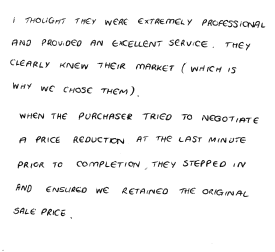 I THOUGHT THEY WERE EXTREMELY PROFESSIONAL
AND PROVIDED AN EXCELLENT SERVICE. THEY
CLEARLY KNEW THEIR MARKET (WHICH IS
WHY WE CHOSE THEM).
WHEN THE PURCHASER TRIED TO NEGOTIATE
A PRICE REDUCTION AT THE LAST MINUTE
PRIOR TO COMPLETION, THEY STEPPED IN
AND ENSURED WE RETAINED THE ORIGINAL
SALE PRICE.